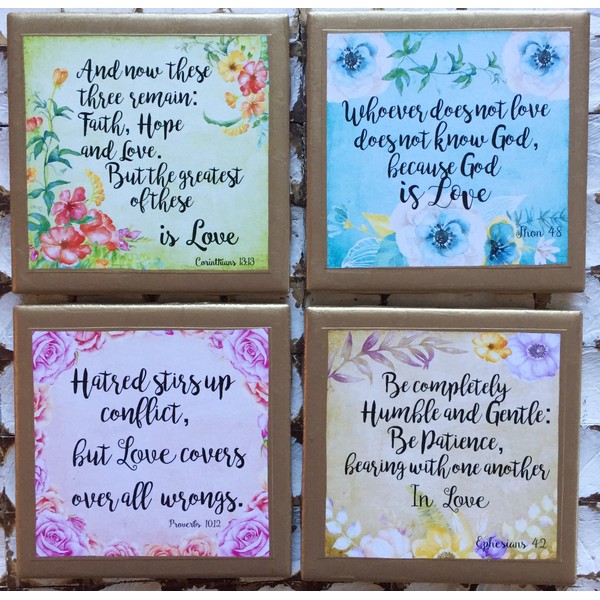 And now these
three remain:
Faith, Hope
and Love.
But the greatest
of these
is Love
Corinthians 13:13
Whoever does not love
does not know God,
because God
is Love
Jhon 4:8
Hatred stirs up
conflict,
but Love covers
over all wrongs.
Proverbs 10:12
Be completely
Humble and Gentle:
Be Patience,
bearing with one another
In Love
Ephesians 4:2